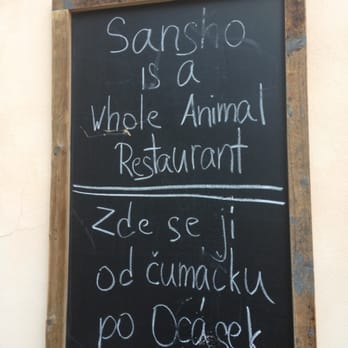 Sansho
is a
Whole Animal
Restaurant
Zde se ji
od čumáčku
po Ocásek